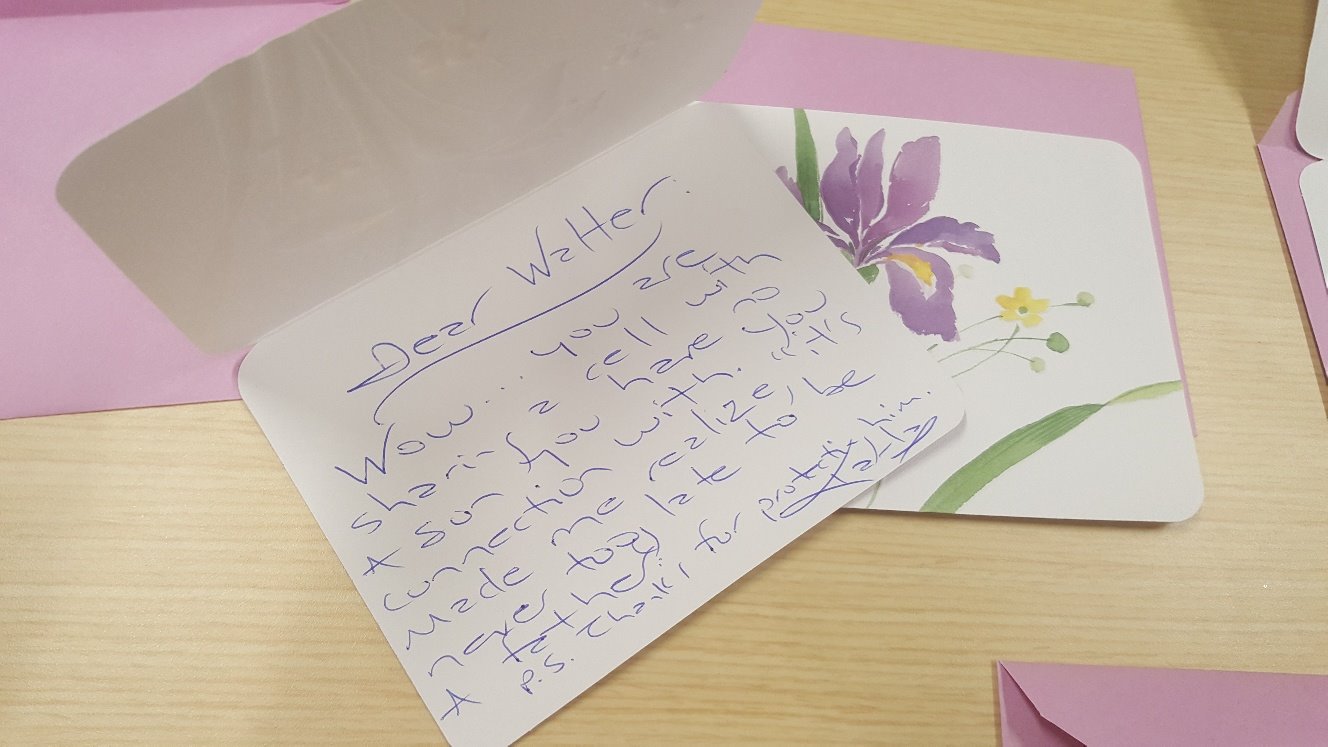 Dear Walter.
Wow... you are
sharing a cell with
A son you have no
connection with. You
Made me realize, it's
never too late to be
A father
p.s. thanks for protectin him.